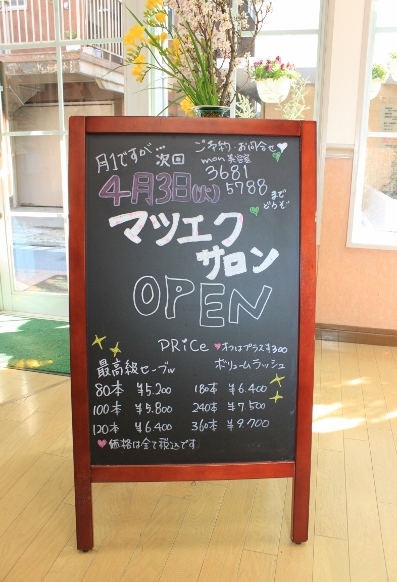 月1ですが… 次回
ご予約・お問合せ
mon美容室
3681
5788
までどうぞ
4月3日(火)
マツエク
サロン
OPEN
PRiCe ♥オフはプラス¥300
最高級セーブル
80本 ¥5.200
100本 ¥5.800
120本 ¥6.400
ボリュームラッシュ
180本 ¥6.400
240本 ¥7.500
360本 ¥9.700
♥価格は全て税込です